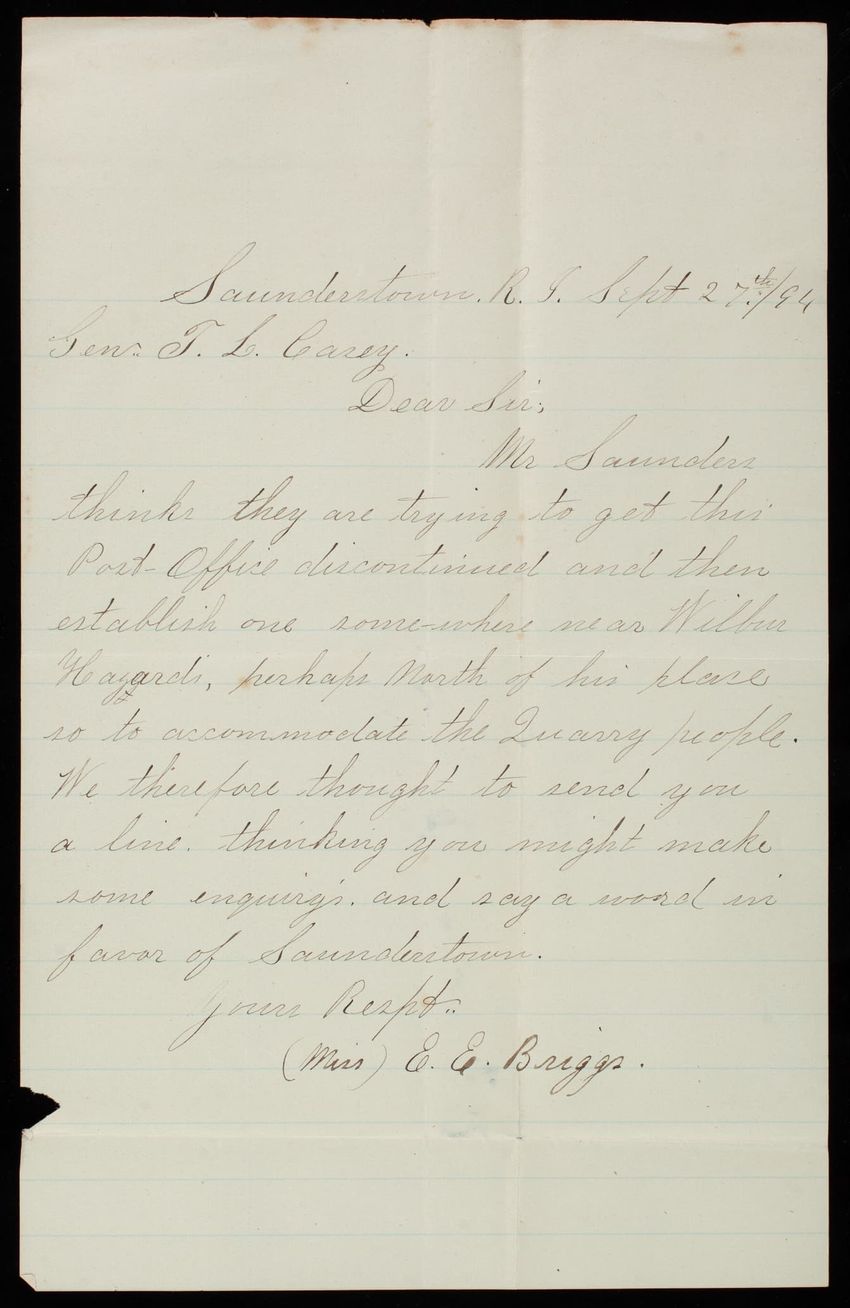 Saunderstown. R. I. Sept 27th/94
Gen: T. L. Casey.
Dear Sir;
Mr Saunders
thinks they are trying to get this
Post-Office discontinued and then
establish one some-where near Wilbur
Hazards, perhaps North of his place
so to accommodate the Quarry people.
We therefore thought to send you
a line. thinking you might make
some enquirys. and say a word in
favor of Saunderstown.
Yours Respt.
(Miss) E. E. Briggs.